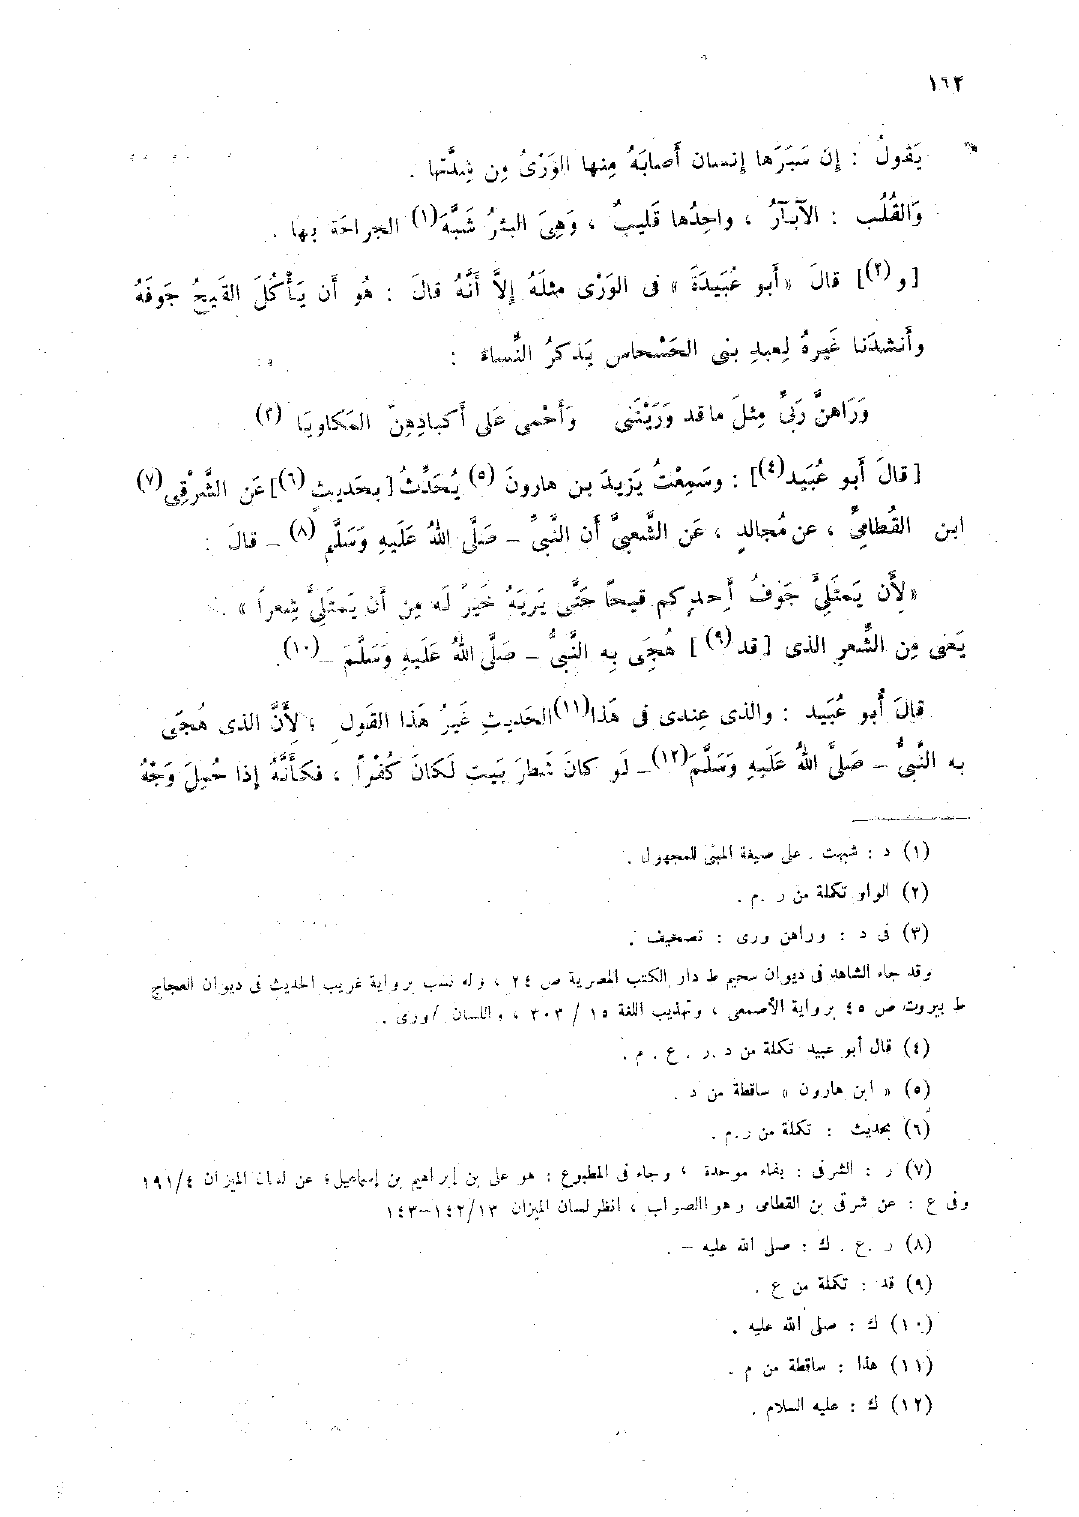 ١٦٢
يَقولُ : إن سَبَرَها إنسان أصابَهُ مِنها الوَرْىُ مِن شِدَّتها .
وَالقُلُب : الآبآرُ ، واحِدُها قَليبٌ ، وَهِىَ البئرُ شَبَّهَ (١) الجراحَة بها .
[ و (٢) ] قالَ « أبو عُبَيدَةَ » فى الوَرْى مثلَهُ إلاَّ أنَّهُ قالَ : هُو أن يَأْكُلَ القَيحُ جَوفَهُ
وأنشدَنا غَيرهُ لِعبدِ بنى الحَسْحاس يَذكرُ النِّساءَ :
وَرَاهنَّ رَبىِّ مِثلَ ما قد وَرَيْنَنى وَأَحْمى عَلى أكبادِهِنّ المَكاويَا (٣)
[ قالَ أبو عُبَيد (٤) ] : وسَمِعْتُ يَزيدَ بن هارونَ (٥) يُحَدِّثُ [ بحَديثٍ (٦) ] عَن الشَّرْقِى (٧)
ابن القُطامِىِّ ، عن مُجالدٍ ، عَن الشَّعبىِّ أن النَّبىَّ – صَلَّى اللهُ عَلَيهِ وَسَلَّم (٨) – قالَ :
« لِأَن يَمتَلِئَ جَوفُ أحدِكم قَيحًا حَتَّى يَرِيَهُ خَيرٌ لَه مِن أن يَمتلئَ شِعراً » .
يَعنى مِن الشِّعرِ الذى [ قد (٩) ] هُجِىَ بِه النَّبىُّ – صَلَّى اللهُ عَلَيهِ وَسَلَّمَ – (١٠) .
قالَ أبو عُبَيد : والذى عِندى فى هَذا (١١) الحَديثِ غَيرُ هَذا القَول ؛ لِأَنَّ الذى هُجىَ
به النَّبىُّ – صَلَّى اللهُ عَلَيهِ وَسَلَّمَ (١٢) – لَو كانَ شَطرَ بَيتٍ لَكانَ كُفْراً ، فكأنَّهُ إذا حُمِلَ وَجْهُ
(١) د : شبهت . على صيغة المبنى للمجهول .
(٢) الواو تكملة من ر . م .
(٣) فى د : وراهن ورى : تصحيف .
وقد جاء الشاهد فى ديوان سحيم ط دار الكتب المصرية ص ٢٤ ، وله نسب برواية غريب الحديث فى ديوان العجاج
ط بيروت ص ٤٥ برواية الأصمعى ، وتهذيب اللغة ١٥ / ٣٠٣ ، واللسان / ورى .
(٤) قال أبو عبيد تكملة من د . ر . ع . م .
(٥) « ابن هارون » ساقطة من د .
(٦) بحديث : تكملة من ر . م .
(٧) ر : الشرفى : بفاء موحدة ، وجاء فى المطبوع : هو على بن إبراهيم بن إسماعيل؛ عن لسان الميزان ١٩١/٤
وفى ع : عن شرقى بن القطامى وهو الصواب ، انظر لسان الميزان ١٤٢/١٣–١٤٣
(٨) ر . ع . ك : صلى الله عليه – .
(٩) قد : تكملة من ع .
(١٠) ك : صلى الله عليه .
(١١) هذا : ساقطة من م .
(١٢) ك : عليه السلام .